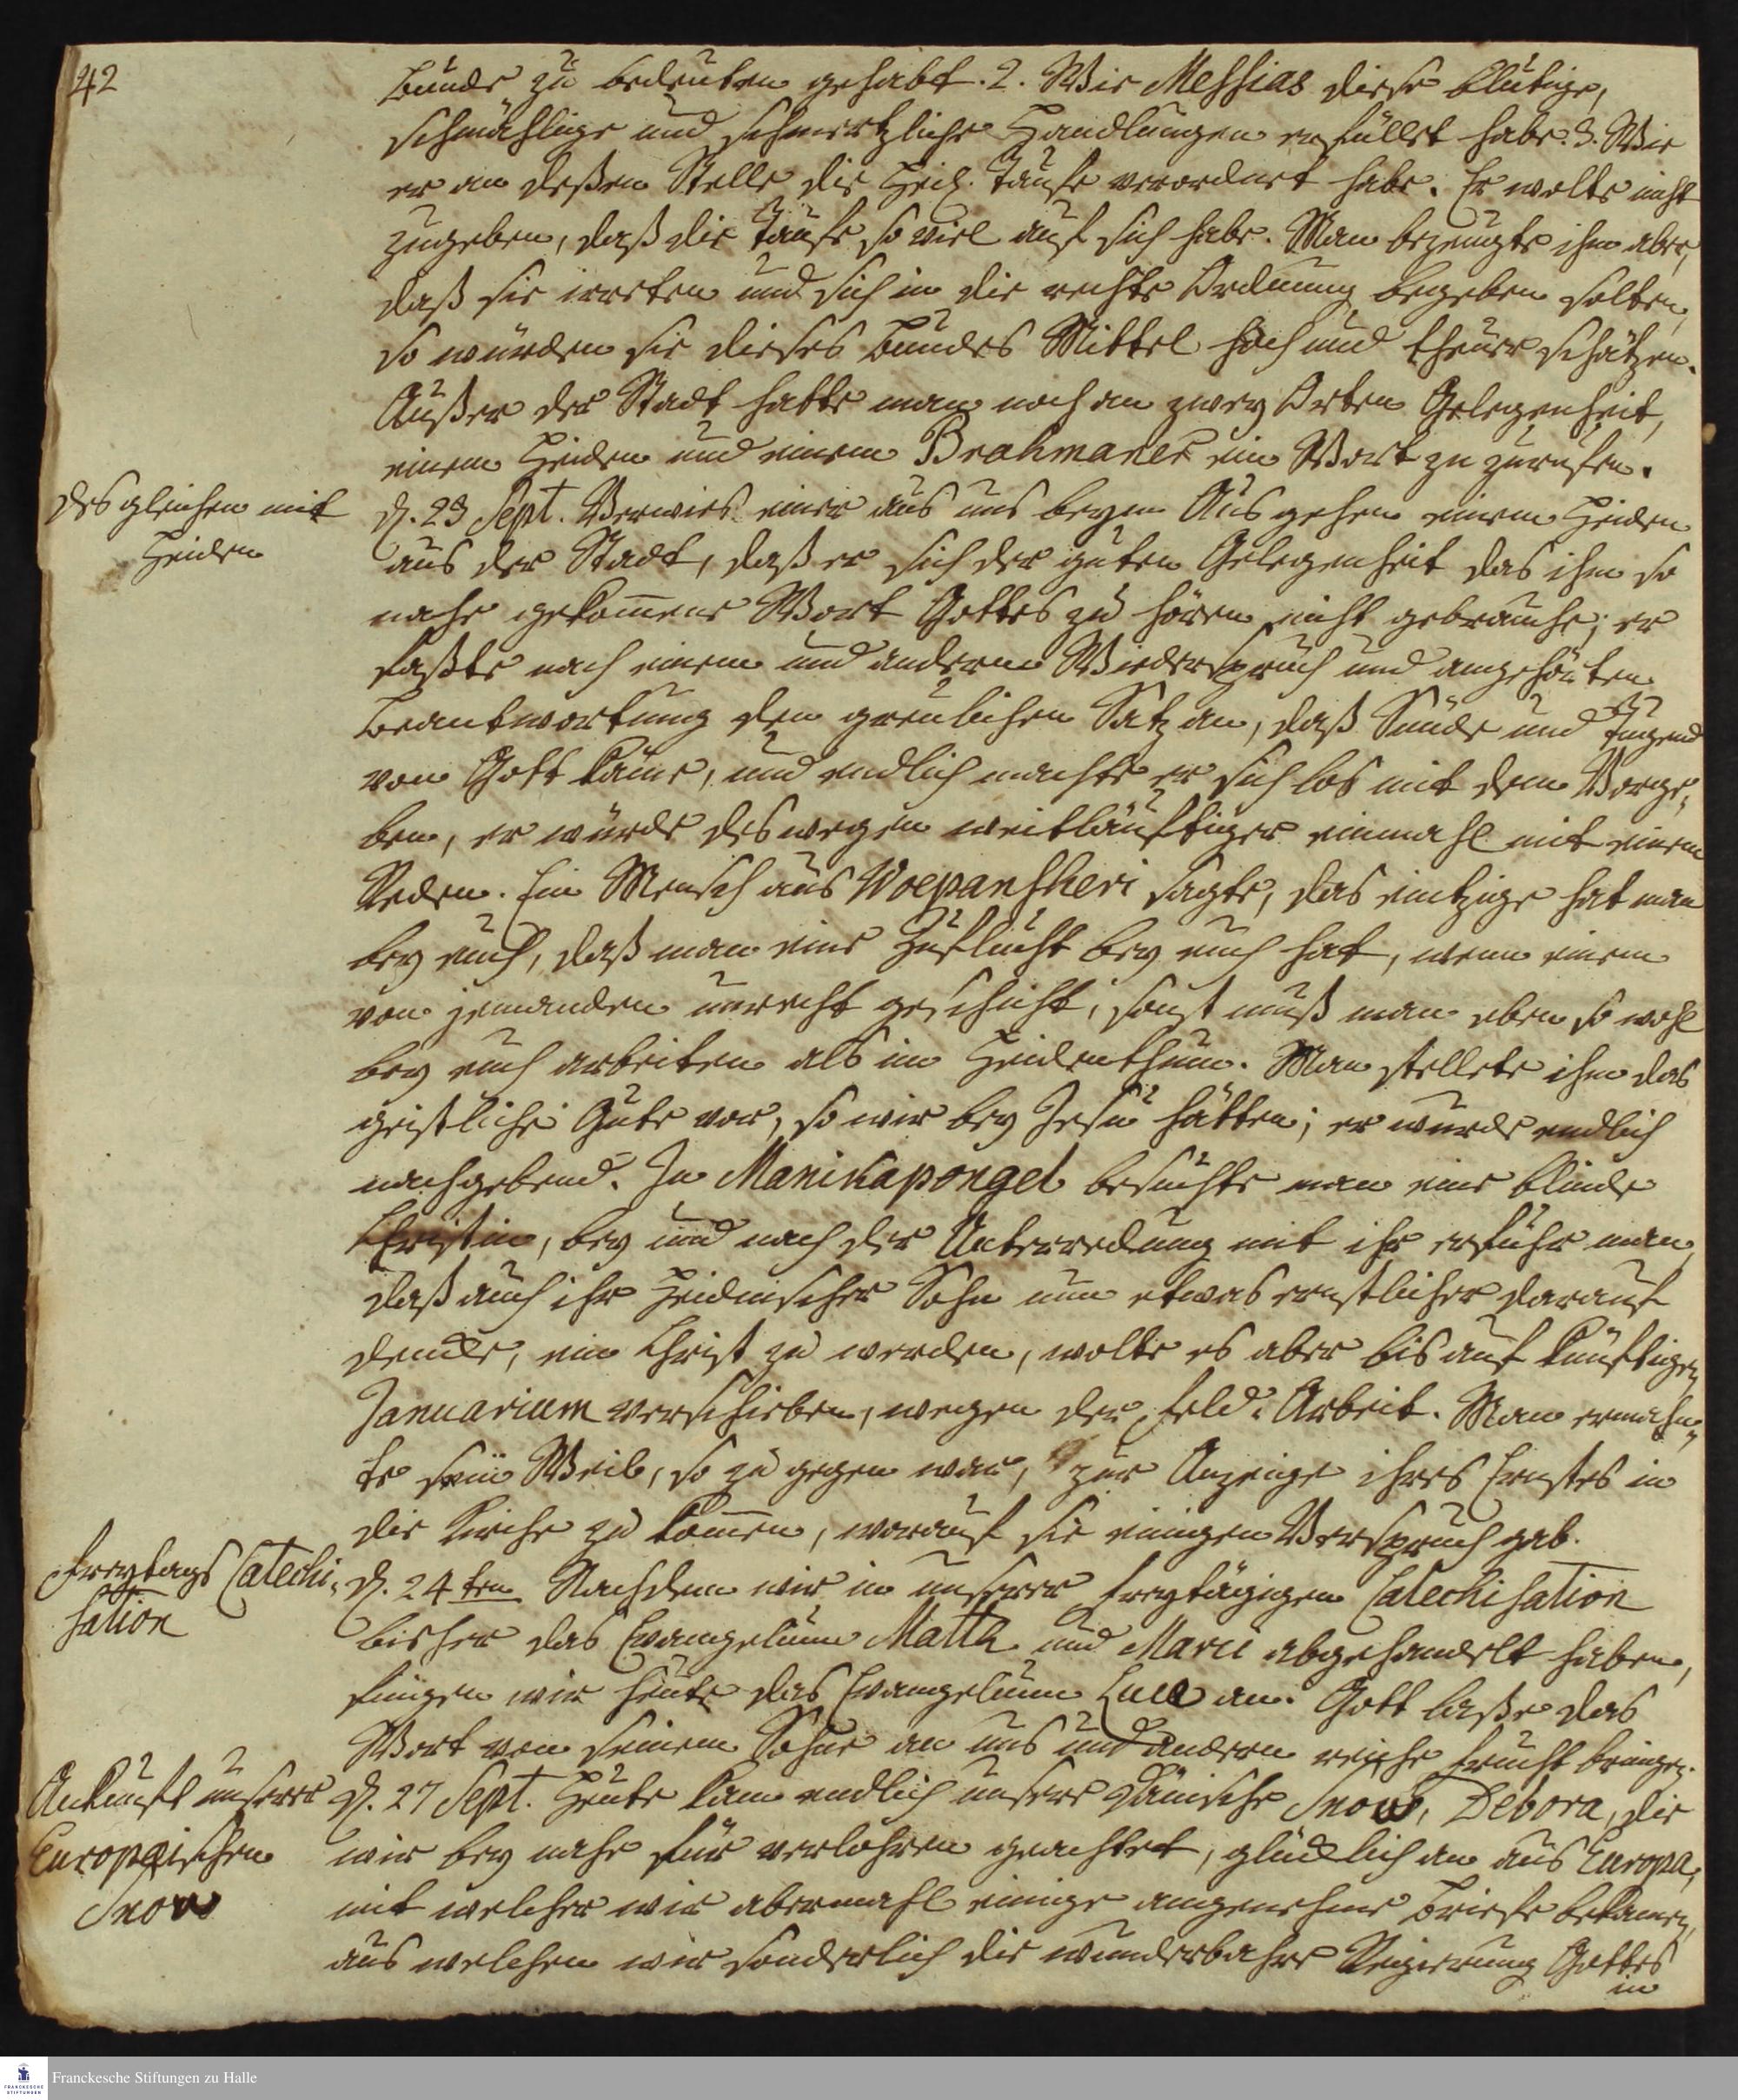 42
Bunds zu bedeuten gehabt. 2. Wie Messias diese blutige,
schmähliche und schmertzliche Handlungen erfüllet habe. 3. Wie
er an deßen Stelle die Heil. Taufe verordnet habe. Er wolte nicht
zugeben, daß die Taufe so viel auf sich habe. Man bezeugte ihm aber,
daß sie irreten und sich in die rechte Ordnung begeben solten,
so würden sie dieses Bundes Mittel hoch und theuer schätzen.
Außer der Stadt hatte man noch an zwey Orten Gelegenheit,
einem Heiden und einem Brahmaner ein Wort zu zurufen.
desgleichen mit
Heiden
d. 23 Sept. Verwies einer aus uns beym Ausgehen einem Heiden
aus der Stadt, daß er sich der guten Gelegenheit das ihm so
nahe gekom̅ene Wort Gottes zu hören nicht gebrauche; er
faßte nach einem und anderm Wiederspruch und angehörten
Beantwortung den greulichen Satz an, daß Sünde und Tugend
von Gott käme, und endlich machte er sich los mit dem Vorge-
ben, er würde deswegen weitläuftiger einmahl mit einem
Reden. Ein Mensch aus Woepansheri sagte, das eintzige hat man
bey euch, daß man eine Zuflucht bey euch hat, wenn einem
von jemanden unrecht geschicht; sonst muß man eben so wohl
bey euch arbeiten als im Heidenthum. Man stellete ihm das
geistliche Gute vor, so wir bey Jesu hätten; er wurde endlich
nachgebend. In Manikapongel besuchte man eine blinde
Christin, bey und nach der Unterredung mit ihr erfuhr man,
daß auch ihr Heidnischer Sohn nun etwas ernstlicher darauf
dencke, ein Christ zu werden, wolte es aber bis auf künftigen
Januarium verschieben, wegen der Feld-Arbeit. Man ermahn-
te sein Weib, so zu gegen war, zur Anzeige ihres Ernstes in
die Kirche zu kom̅en, worauf sie einigen Verspruch gab.
Freytags Catechi-
sation
d. 24 ten Nachdem wir in unserer freytägigen Catechisation
bisher das Evangelium Matth. und Marci abgehandelt haben,
fingen wir heute das Evangelium Lucä an. Gott laße das
Wort von seinem Sohne an uns und andern reiche Frucht bringen.
Ankunft unserer
Europäischen
Snow
d. 27 Sept. Heute kam endlich unsere Dänische Snow, Debora, die
wir bey nahe für verlohren geachtet, glücklich an aus Europa,
mit welcher wir abermahl einige angenehme Briefe bekamen,
aus welchen wir sonderlich die wunderbahre Regierung Gottes
in
Franckesche Stiftungen zu Halle
FRANCKESCHE
STIFTUNGEN